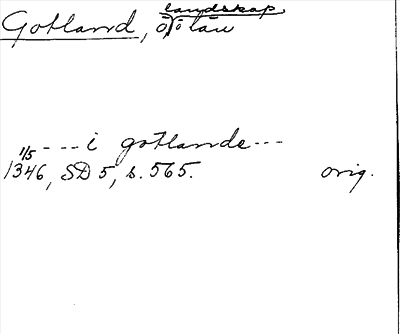 landskap
Gotland, ö o län
1/5 - - - i gotlande - - -
1346, SD 5, s. 565. orig.